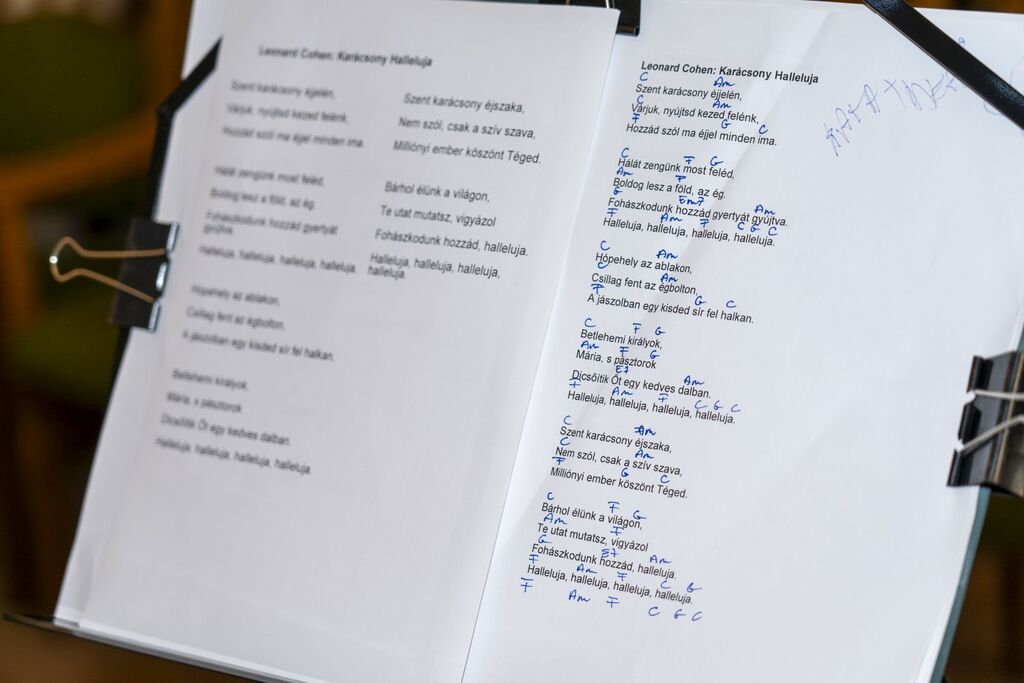 Leonard Cohen: Karácsony Halleluja
Szent karácsony éjjelén,
Várjuk, nyújtsd kezed felénk,
Hozzád szól ma éjjel minden ima.
Hálát zengünk most feléd,
Boldog lesz a föld, az ég.
Fohászkodunk hozzád gyertyát
gyújtva.
Halleluja, halleluja, halleluja, halleluja.
Hópehely az ablakon,
Csillag fent az égbolton,
A jászolban egy kisded sír fel halkan.
Betlehemi királyok,
Mária, s pásztorok
Dicsőítik Őt egy kedves dalban.
Halleluja, halleluja, halleluja, halleluja.
Szent karácsony éjszaka,
Nem szól, csak a szív szava,
Milliónyi ember köszönt Téged.
Bárhol élünk a világon,
Te utat mutatsz, vigyázol
Fohászkodunk hozzád, halleluja.
Halleluja, halleluja, halleluja,
halleluja.
Leonard Cohen: Karácsony Halleluja
C Am
Szent karácsony éjjelén,
C Am
Várjuk, nyújtsd kezed felénk,
F G C
Hozzád szól ma éjjel minden ima.
C F G
Hálát zengünk most feléd,
Am F
Boldog lesz a föld, az ég.
G Em7 Am
Fohászkodunk hozzád gyertyát gyújtva.
F Am F C G C
Halleluja, halleluja, halleluja, halleluja.
C Am
Hópehely az ablakon,
C Am
Csillag fent az égbolton,
F G C
A jászolban egy kisded sír fel halkan.
C F G
Betlehemi királyok,
Am F G
Mária, s pásztorok
E7 Am
Dicsőítik Őt egy kedves dalban.
F Am F C G C
Halleluja, halleluja, halleluja, halleluja.
C Am
Szent karácsony éjszaka,
C Am
Nem szól, csak a szív szava,
F G C
Milliónyi ember köszönt Téged.
C F G
Bárhol élünk a világon,
Am F
Te utat mutatsz, vigyázol
G E7 Am
Fohászkodunk hozzád, halleluja.
F Am F C G
Halleluja, halleluja, halleluja, halleluja.
F Am F C G C